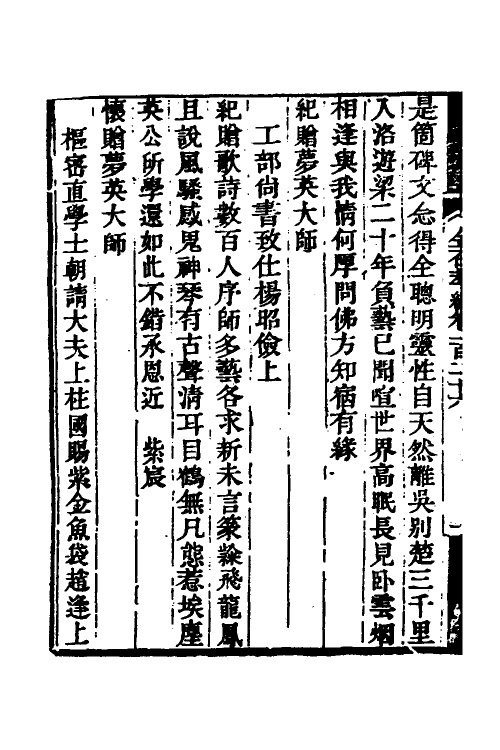 是箇碑文念得全聰明靈性自天然離吳别楚三千里
入洛遊梁二十年負藝已聞喧世界高眠長見卧雲烟
相逢與我情何厚問佛方知宿有緣
紀贈夢英大師
工部尚書致仕楊昭儉上
紀贈歌詩數百人序師多藝各求新未言篆籀飛龍鳳
且說風騷感鬼神琴有古聲淸耳目鶴無凡態惹埃塵
英公所學還如此不錯承恩近 紫宸
懷贈夢英大師
樞密直學士朝請大夫上柱國賜紫金魚袋趙逢上